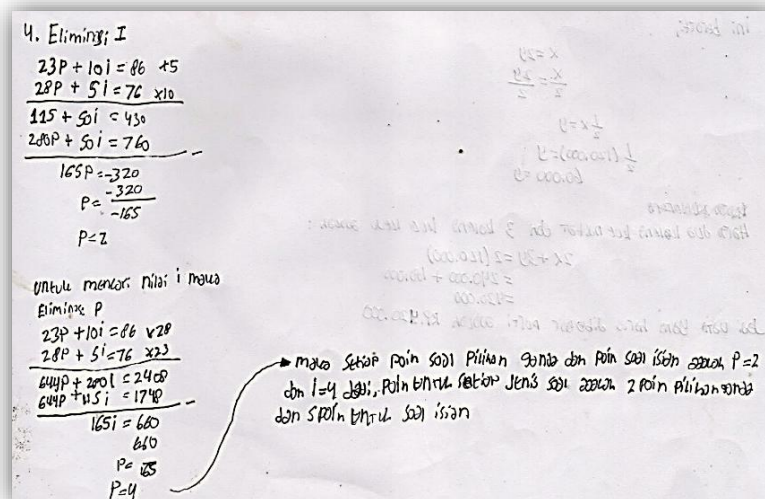 4. Eliminasi I
23P + 10i = 86 x5
28P + 5i = 76 x10
115 + 50i = 430
280P + 50i = 760 -
165P = -320
P = -320 / -165
P = 2
Untuk mencari nilai i maka
Eliminasi P
23P + 10i = 86 x28
28P + 5i = 76 x23
644P + 280i = 2408
644P + 115i = 1748 -
165i = 660
660
P = 165
P = 4
maka setiap poin soal pilihan ganda dan poin soal isian adalah P = 2
dan i = 4 jadi, Poin untuk setiap jenis soal adalah 2 poin pilihan ganda
dan 5 poin untuk soal isian
ini berarti,
x = 2y
x/2 = 2y/2
1/2 x = y
1/2 (120.000) = y
60.000 = y
2x + 3y = 2 (120.000)
= 240.000 +
= 420.000